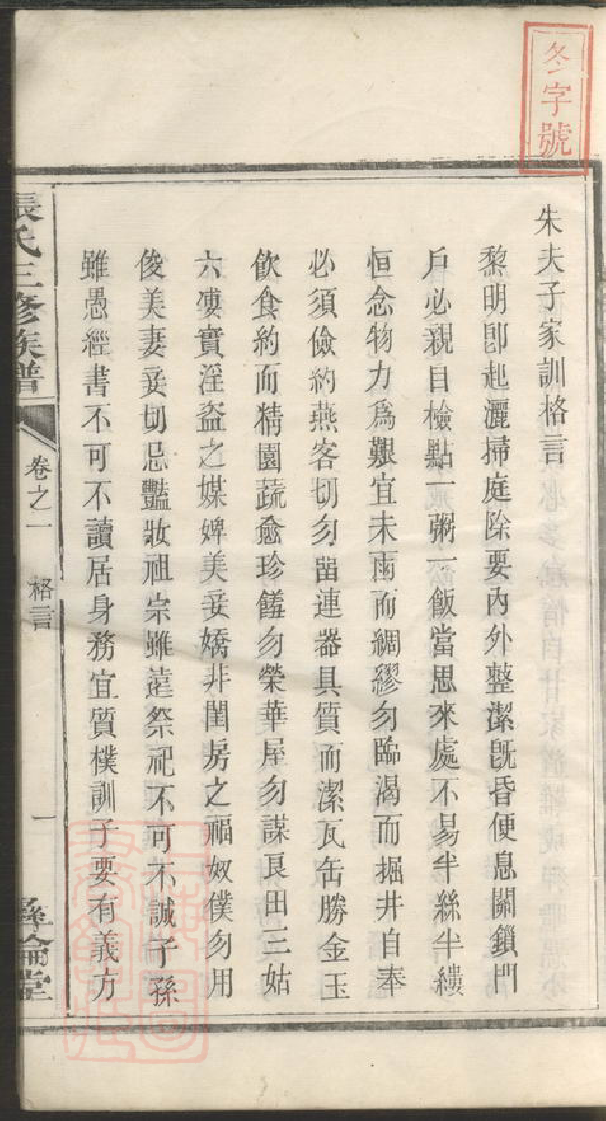 冬字號
朱夫子家訓格言
黎明卽起灑掃庭除要內外整潔旣昏便息關鎖門
戶必親自檢點一粥一飯當思來處不易半絲半縷
恒念物力爲艱宜未雨而綢繆勿臨渴而掘井自奉
必須儉約燕客切勿畱連器具質而潔瓦缶勝金玉
飮食約而精園蔬愈珍饈勿榮華屋勿謀良田三姑
六婆實淫盜之媒婢美妾嬌非閨房之福奴僕勿用
俊美妻妾切忌豔妝祖宗雖遠祭祀不可不誠子孫
雖愚經書不可不讀居身務宜質樸訓子要有義方
張氏三修族譜
卷之一
格言
一
彝倫堂